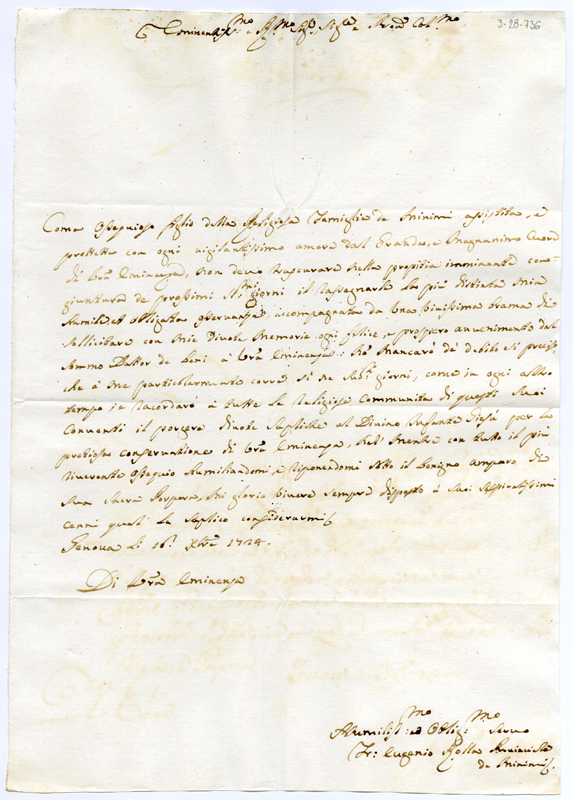 3-28-736
Eminentiss:mo e R:mo Sig:e Sig:e e Pron Col:mo
Come Ossequioso figlio della Religiosa Famiglia de Minimi assistita, e
protetta con ogni vigilantissimo amore dal Grande, e Magnanimo Cuore
di Vra Eminenza, non devo trascurare nella propitia imminente con-
giuntura de prossimi Sti giorni il rassegnarle la più distinta mia
humile et obligata osservanza, accompagnata da una vivissima brama di
sollicitare con mie divote memorie ogni felice, e prospero avvenimento dal
Sommo Dattor de beni à Vra Eminenza: Ne mancarò da debito si preciso,
che à me particolarmente corre sì ne Sti giorni, come in ogni altro
tempo
raccordare à tutte le Religiose Communità di questi Suoi
Conventi il porgere divote suppliche al Divino Infante Giesù per la
pretiosa conservatione di Vra Eminenza. Nel mentre con tutto il più
riverente ossequio humiliandomi, e riponendomi sotto il benigno amparo di
Sua Sacra Porpora, mi glorio vivere sempre disposto à Suoi
cenni quali la suplico considerarmi
Genova li 16: Xbre 1724.
Di Vra Eminenza
Humilis:mo ed Oblig:mo Servo
Fr: Eugenio Rolla
de Minimi